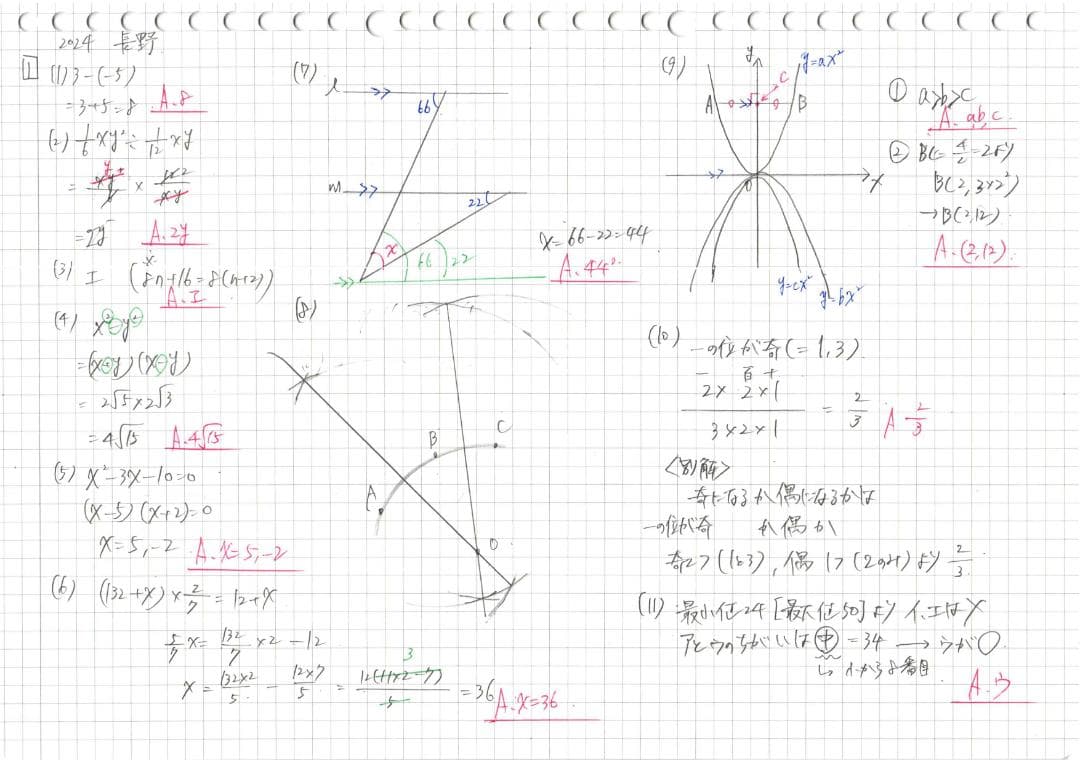 2024 長野
1
(1) 3-(-5)
=3+5=8 A.8
(2) 1/6 xy² ÷ 1/12 xy
= xy²/6 × 12/xy
=2y A.2y
(3) エ (8n+16=8(n+2))
A.エ
(4) x²-y²
=(x+y)(x-y)
=2√5×2√3
=4√15 A.4√15
(5) x²-3x-10=0
(x-5)(x+2)=0
x=5,-2 A.x=5,-2
(6) (132+x)×2/7=12+x
5/7 x=132/7×2-12
x=132×2/5-12×7/5=12(11×2-7)/5=36
3
A.x=36
(7)
l 66
m 22
x 66 22
x=66-22=44
A.44°
(8)
A B C O
(9) y y=ax²
C
A B
O x
y=cx² y=bx²
① a>b>c
A. a,b,c
② Bは4/2=2より
B(2, 3×2²)
→B(2,12)
A.(2,12)
(10) 一の位が奇(=1,3)
一 百 十
2×2×1/3×2×1=2/3 A 2/3
<別解>
奇になるか偶になるかは
一の位が奇か偶か
奇2つ(1と3), 偶1つ(2のみ)より 2/3
(11) 最小値24[最大値50]よりイ,エは×
アとウのちがいは㊥=34→ウが○
A.ウ